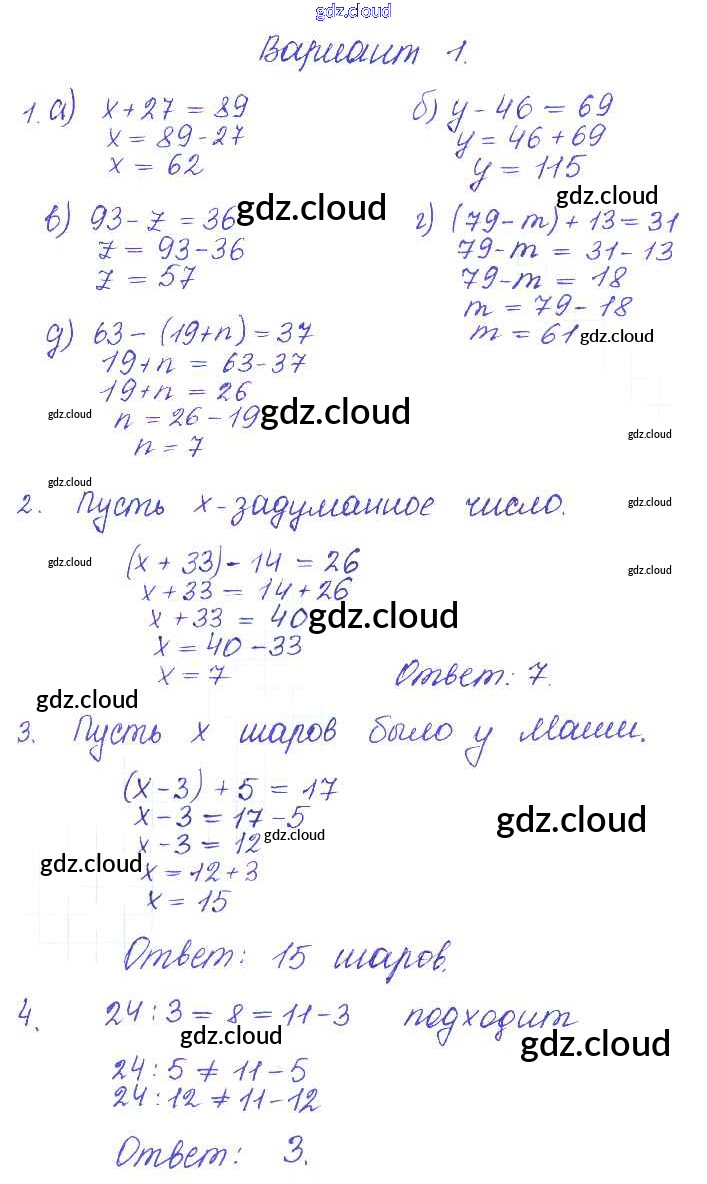 gdz.cloud
gdz.cloud
Вариант 1.
1. а) x + 27 = 89
x = 89 - 27
x = 62
б) y - 46 = 69
y = 46 + 69
y = 115
gdz.cloud
в) 93 - z = 36 gdz.cloud
z = 93 - 36
z = 57
г) (79 - m) + 13 = 31
79 - m = 31 - 13
79 - m = 18
m = 79 - 18
m = 61 gdz.cloud
д) 63 - (19 + n) = 37
19 + n = 63 - 37
19 + n = 26
gdz.cloud n = 26 - 19 gdz.cloud
gdz.cloud
n = 7
gdz.cloud
2. Пусть x - задуманное число. gdz.cloud
gdz.cloud (x + 33) - 14 = 26 gdz.cloud
x + 33 = 14 + 26
x + 33 = 40 gdz.cloud
x = 40 - 33
x = 7 Ответ: 7.
gdz.cloud
3. Пусть x шаров было у Маши.
(x - 3) + 5 = 17
x - 3 = 17 - 5 gdz.cloud
x - 3 = 12 gdz.cloud
gdz.cloud x = 12 + 3
x = 15
Ответ: 15 шаров.
4. 24 : 3 = 8 = 11 - 3 подходит
gdz.cloud gdz.cloud
24 : 5 ≠ 11 - 5
24 : 12 ≠ 11 - 12
Ответ: 3.